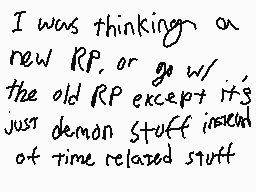 I was thinking a
new RP, or go w/
the old RP except it's
just demon stuff instead
of time related stuff